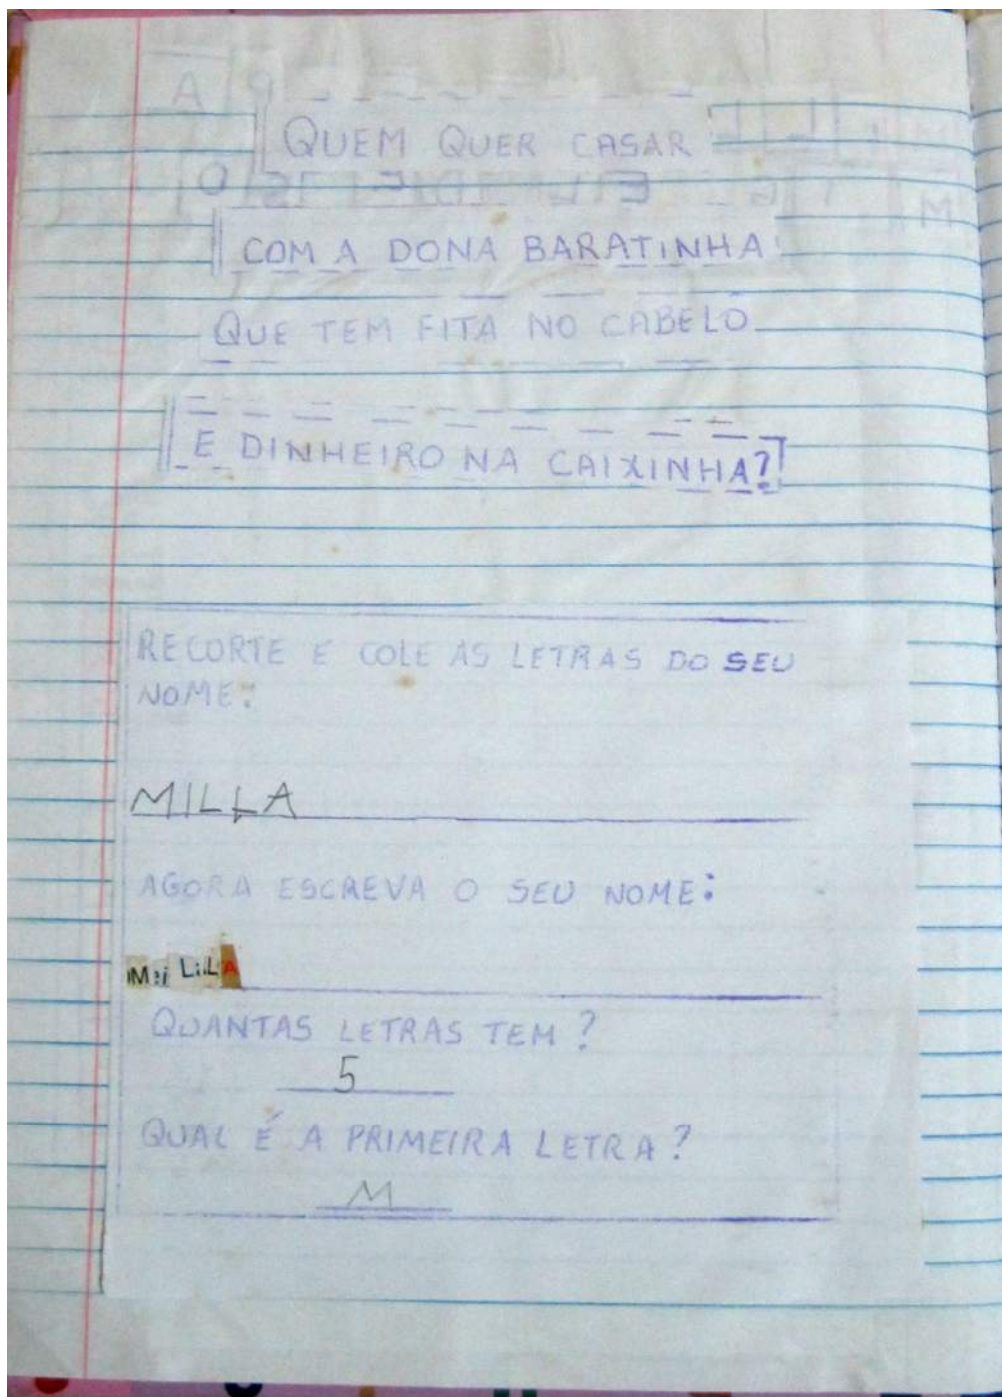 QUEM QUER CASAR
COM A DONA BARATINHA
QUE TEM FITA NO CABELO
E DINHEIRO NA CAIXINHA?
RECORTE E COLE AS LETRAS DO SEU
NOME:
MILLA
AGORA ESCREVA O SEU NOME:
Mi LiLA
QUANTAS LETRAS TEM?
5
QUAL É A PRIMEIRA LETRA?
M